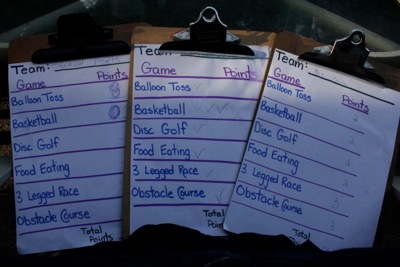 Team:
Game Points
Balloon Toss
Basketball
Disc Golf
Food Eating
3 Legged Race
Obstacle Course
Total Points
Team:
Game Points
Balloon Toss
Basketball
Disc Golf
Food Eating
3 Legged Race
Obstacle Course
Total
Team:
Game Points
Balloon Toss
Basketball 2
Disc Golf
Food Eating 2
3 Legged Race 3
Obstacle Course 3
Total Points